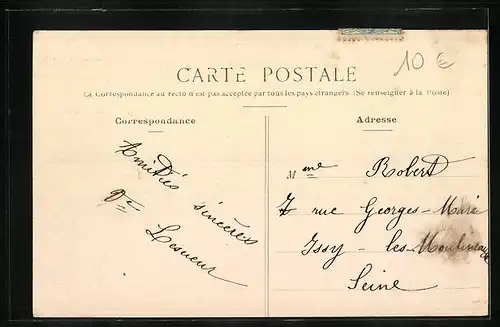 10 €
CARTE POSTALE
La Correspondance au recto n'est pas acceptée par tous les pays étrangers. (Se renseigner à la Poste)
Correspondance
Amitiés
sincères
Lesueur
Adresse
Mme Robert
7 rue Georges-
Issy-les-Moulineaux
Seine